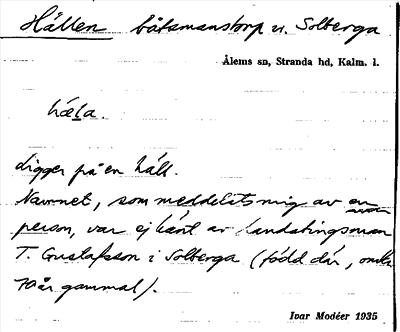 Hällen båtsmanstorp u. Solberga
Ålems sn, Stranda hd, Kalm. l.
hæla.
Ligger på en häll.
Namnet, som meddelats mig av en annan
person, var ej känt av landstingsman
T. Gustafsson i Solberga (född där, omkr.
70 år gammal).
Ivar Modéer 1935